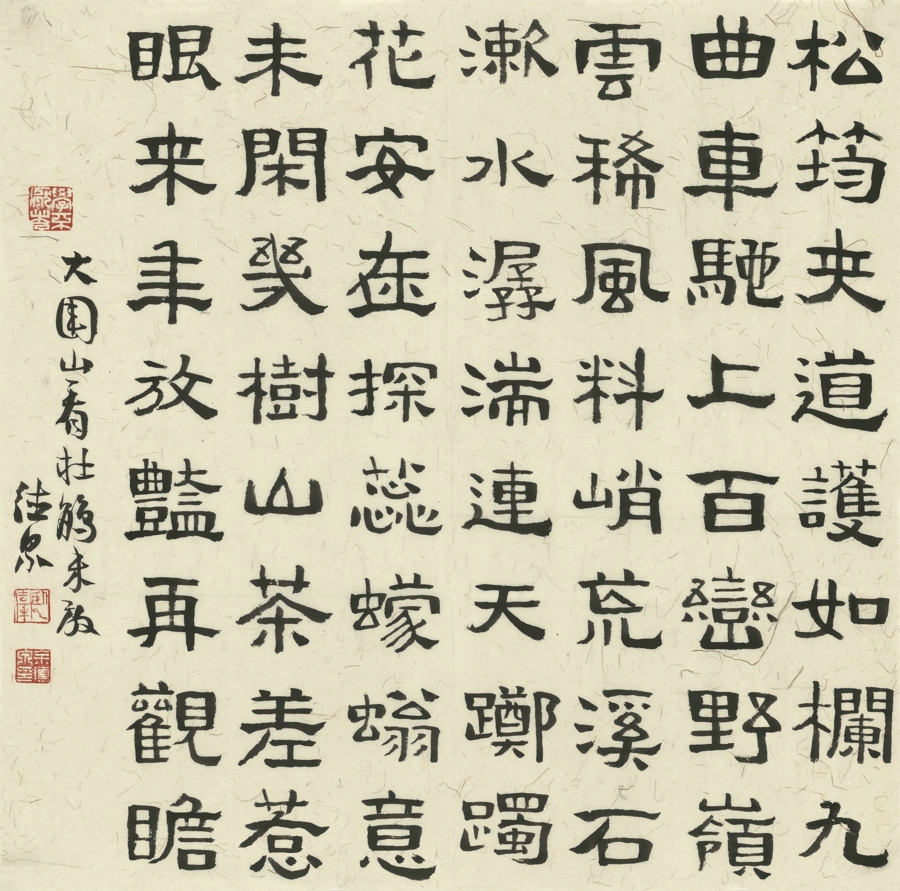 松筠夾道護如欄九
曲車馳上百巒野嶺
雲稀風料峭荒溪石
漱水潺湍連天躑躅
花安在探蕊蠓螉意
未閑幾樹山茶差惹
眼来年放豔再觀瞻
大圍山看杜鵑未
德泉